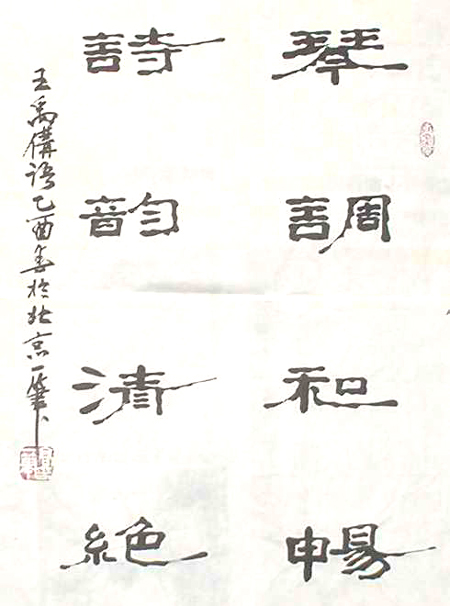 琴調和暢
詩韵清絕
王禹偁語乙酉春於北京一聲